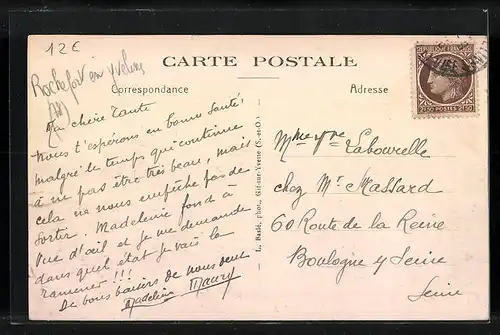 12€
Rochefort en Yvelines
CARTE POSTALE
Correspondance
Adresse
REPUBLIQUE FRANCAISE
2F50 POSTES 2F50
Ma chère Tante
Nous t'espérons en bonne santé,
malgré le temps qui continue
à ne pas être très beau, mais
cela ne nous empêche pas de
sortir. Madeleine fond à
vue d'œil et je me demande
dans quel état je vais la
ramener !!!
De bons baisers de nous deux
Madeleine Maury
L. Baslé, phot., Gif-sur-Yvette (S.-et-O.)
Mme Vve Labourelle
chez Mr Massard
60 Route de la Reine
Boulogne s/ Seine
Seine